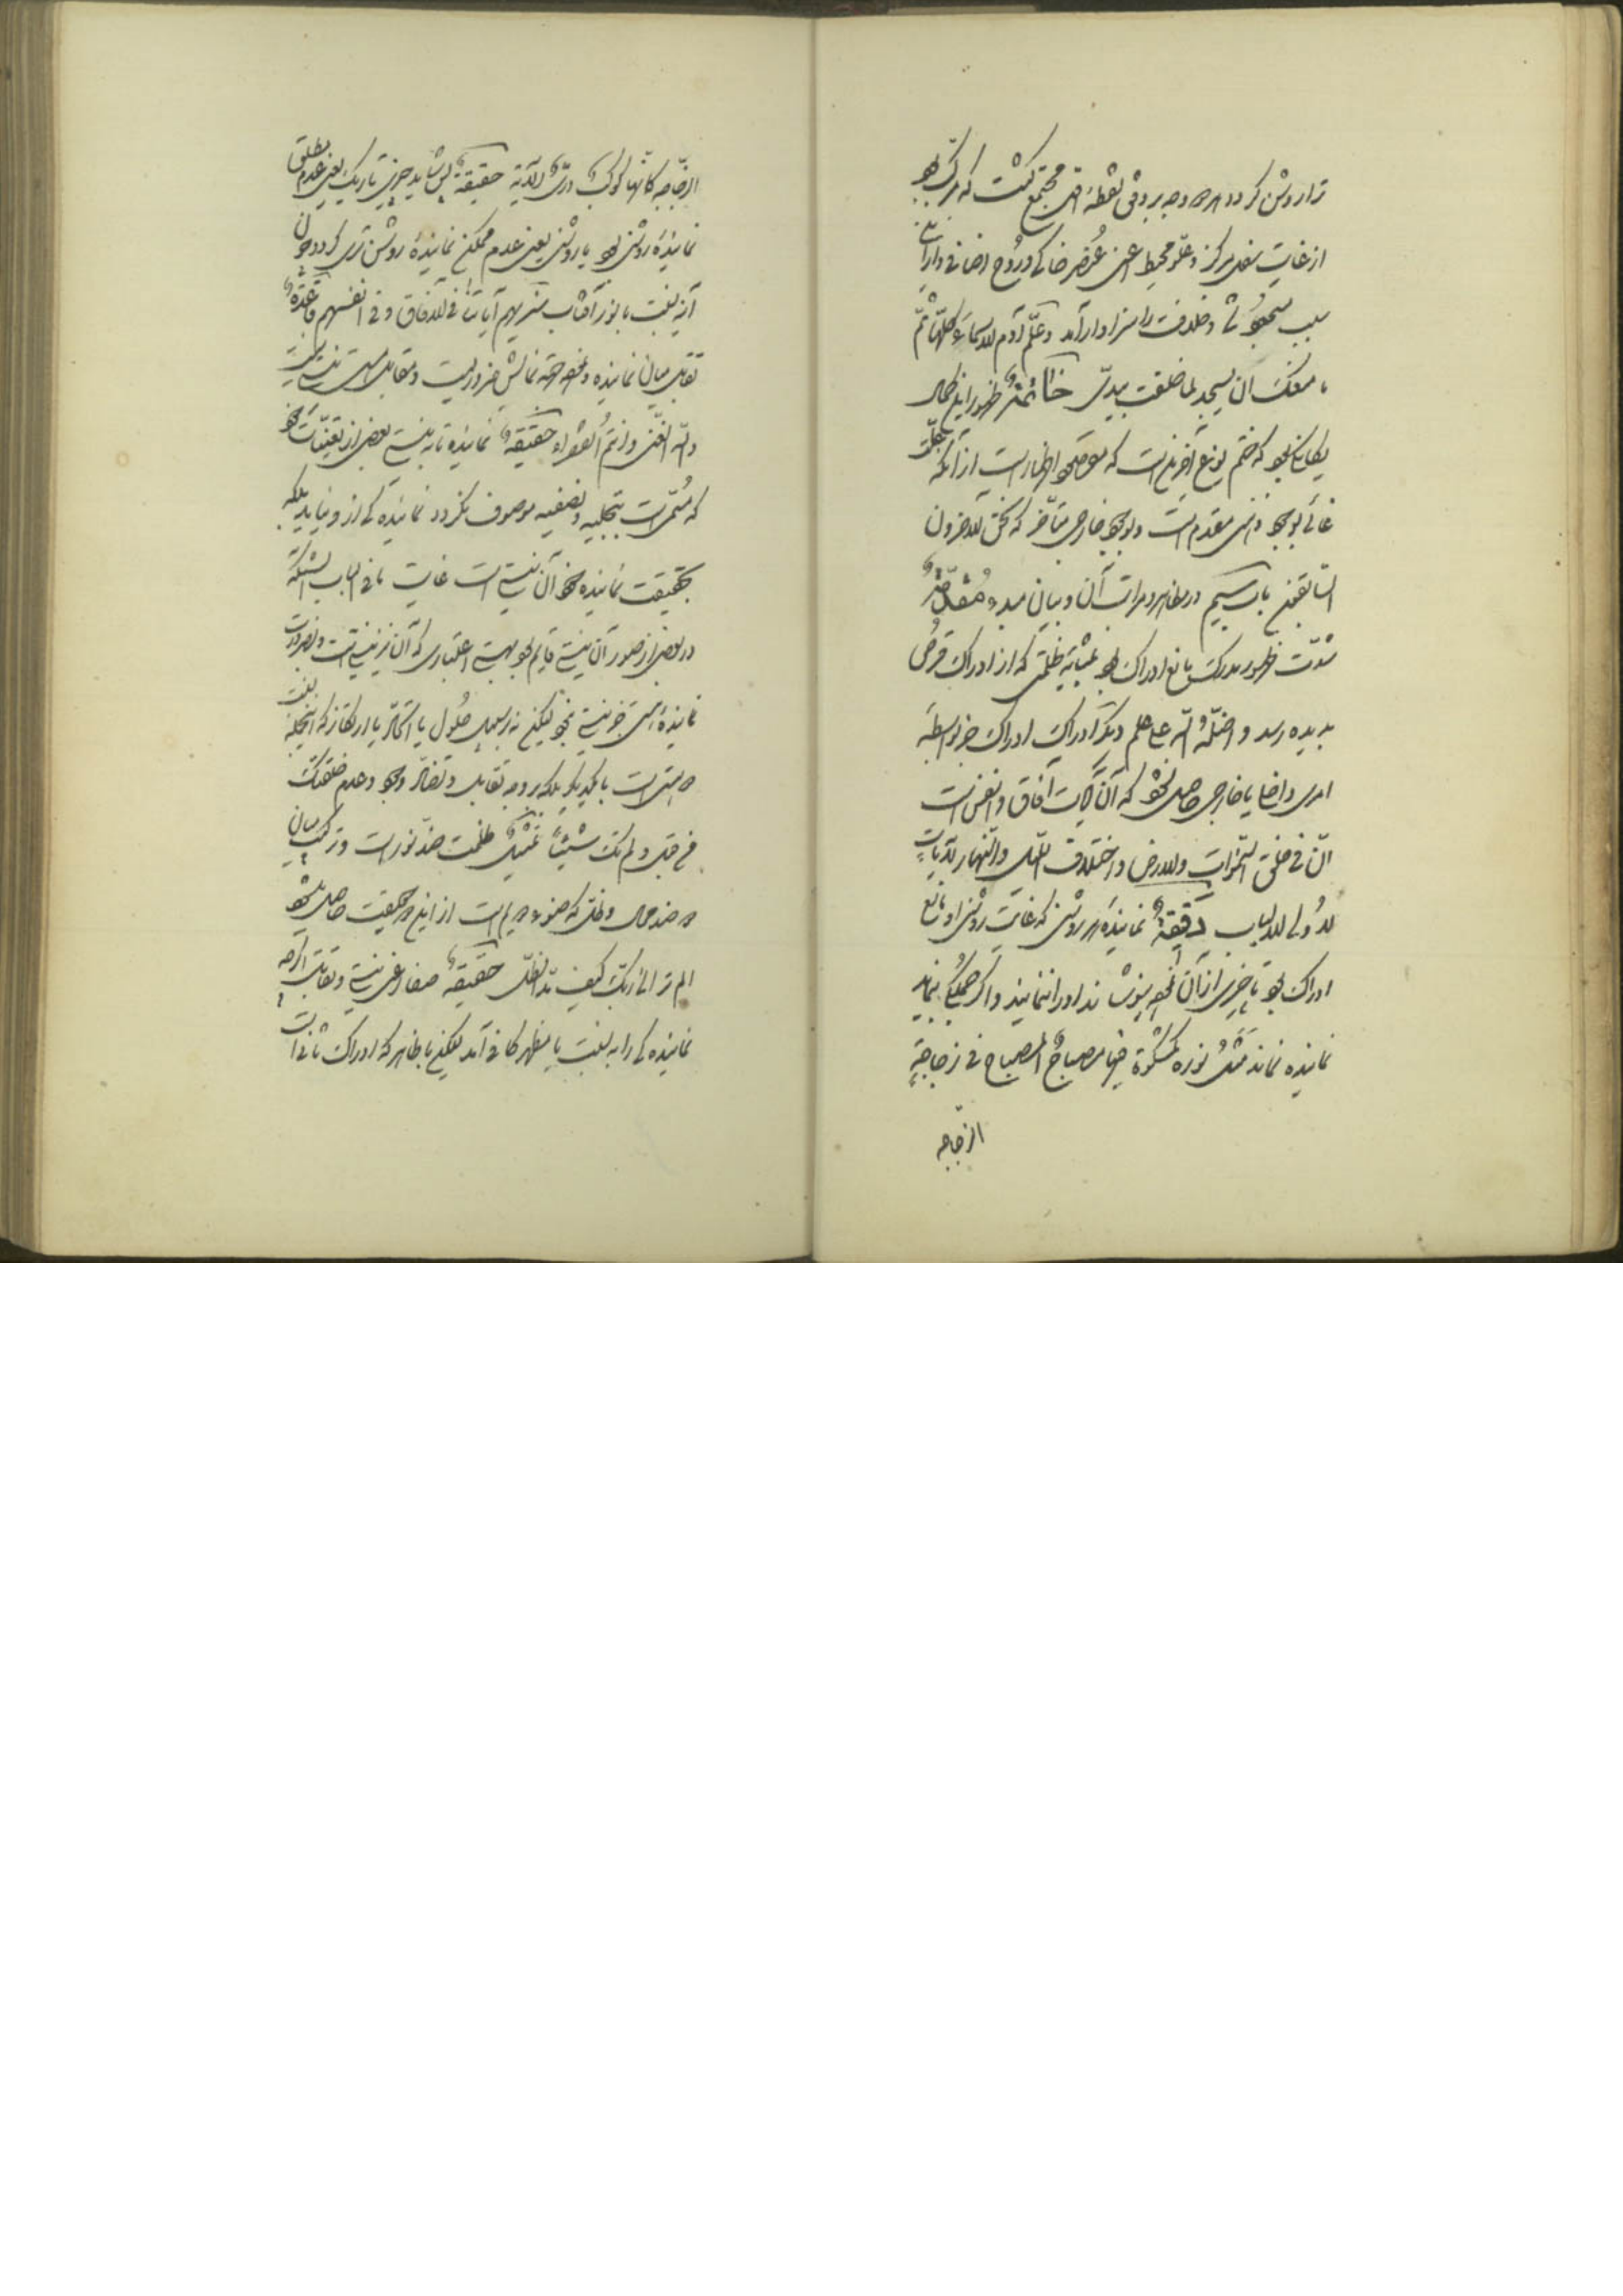 ترا روشن گردد هر دو وجه بر وفق نقطهٔ مجتمع گشت که مرکب بود
از غایت سفل مرکز و علو محیط اعنی عنصر خاکی و روح اضافی و از آن
سبب مسجود و خلافت را سزاوار آمد و علم آدم الاسماء کلها ثم
ما منعک ان تسجد لما خلقت بیدی خاتمة ظهور این کمال
که ختم نوع آخرین است که موضع اظهار است از آنکه علت
غائی بوجود ذهنی مقدم است و بوجود خارجی متأخر که نحن الآخرون
السابقون باب سیم در مظاهر و مراتب آن و بیان مبدء مقدمة
شدت ظهور مدرک مانع ادراک بود بمثابهٔ ظلمتی که از ادراک قرص
بدیده رسد و اضله الله علی علم و دیگر ادراک ادراک جز بواسطهٔ
امری داخلی یا خارجی حاصل نشود که آن آیات آفاق و انفس است
ان فی خلق السموات والارض و اختلاف اللیل والنهار لآیات
لاولی الالباب دقیقة نمایندهٔ هر روشنی که غایت روشنی او مانع
ادراک بود تا چیزی از آن نخست بپوشاند او را ننماید و اگر همگی بنماید
نماینده نماند مثل نوره کمشکوة فیها مصباح المصباح فی زجاجة
الزجاجه
الزجاجه کانها کوکب دری الآیة حقیقة پس شاید چیزی تاریک یعنی عدم مطلق
نمایندهٔ روشنی بود یا روشنی یعنی عدم ممکن نمایندهٔ روشن تری گردد چون
آینه نسبت با نور آفتاب سنریهم آیاتنا فی الآفاق و فی انفسهم قاعدة
تقابل میان نماینده و آنچه نمایش ضروریست و مقابل هستی نیستی است
والله الغنی و انتم الفقراء حقیقة نماینده تا به نیستی بعضی از تعینات خود
که مستمر است بتجلیه و تصفیه موصوف نگردد نمایندگی از او نیاید بلکه
بحقیقت نماینده خود آن نیستی است غایت ما فی الباب آنکه
در بعضی از صور آن نیستی قایم بود بهستی اعتباری که آن نیز نیستی است و بضرورت
نمایندهٔ هستی جز نیستی نبود لیکن نه بر سبیل حلول یا اتحاد یا ارتکاز که اینجمله نسبت
دو هستی است با یکدیگر بلکه بر وجه تقابل و تضاد وجود و عدم خلقتک
من قبل و لم تک شیئا تمثیل ظلمت ضد نور است و ترکیب میان
دو ضد محال و ظل که ضوء دویم است از این دو حقیقت حاصل میشود
الم تر الی ربک کیف مد الظل حقیقة صفا و عین نیستی و تقابل اگرچه
نمایندگی را به نسبت با مظهر کافی آمد لیکن با ظاهر که ادراک ثانی است